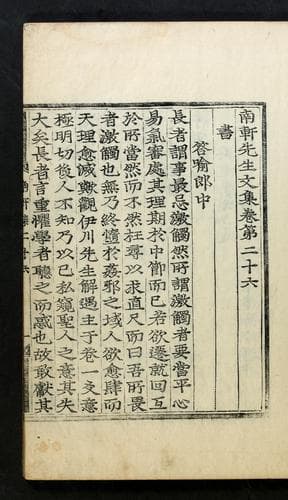 南軒先生文集卷第二十六
書
答喻郎中
長者謂事最忌激觸然所謂激觸者要當平心
易氣審處其理期於中節而已若欲遷就回互
於所當然而不然枉尋以求直尺而曰吾所畏
者激觸也無乃終墮於姦邪之域人欲愈肆而
天理愈滅歟觀伊川先生解遇主于巷一爻意
極明切後人不知乃以已私窺聖人之意其失
大矣長者言重懼學者聽之而惑也故敢獻其